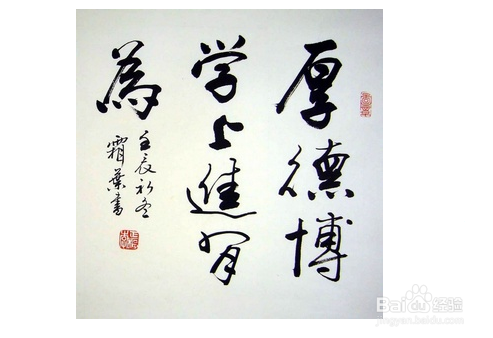 厚德博
学上進有
為
壬辰初冬
霜葉書
Baidu 经验
jingyan.baidu.com